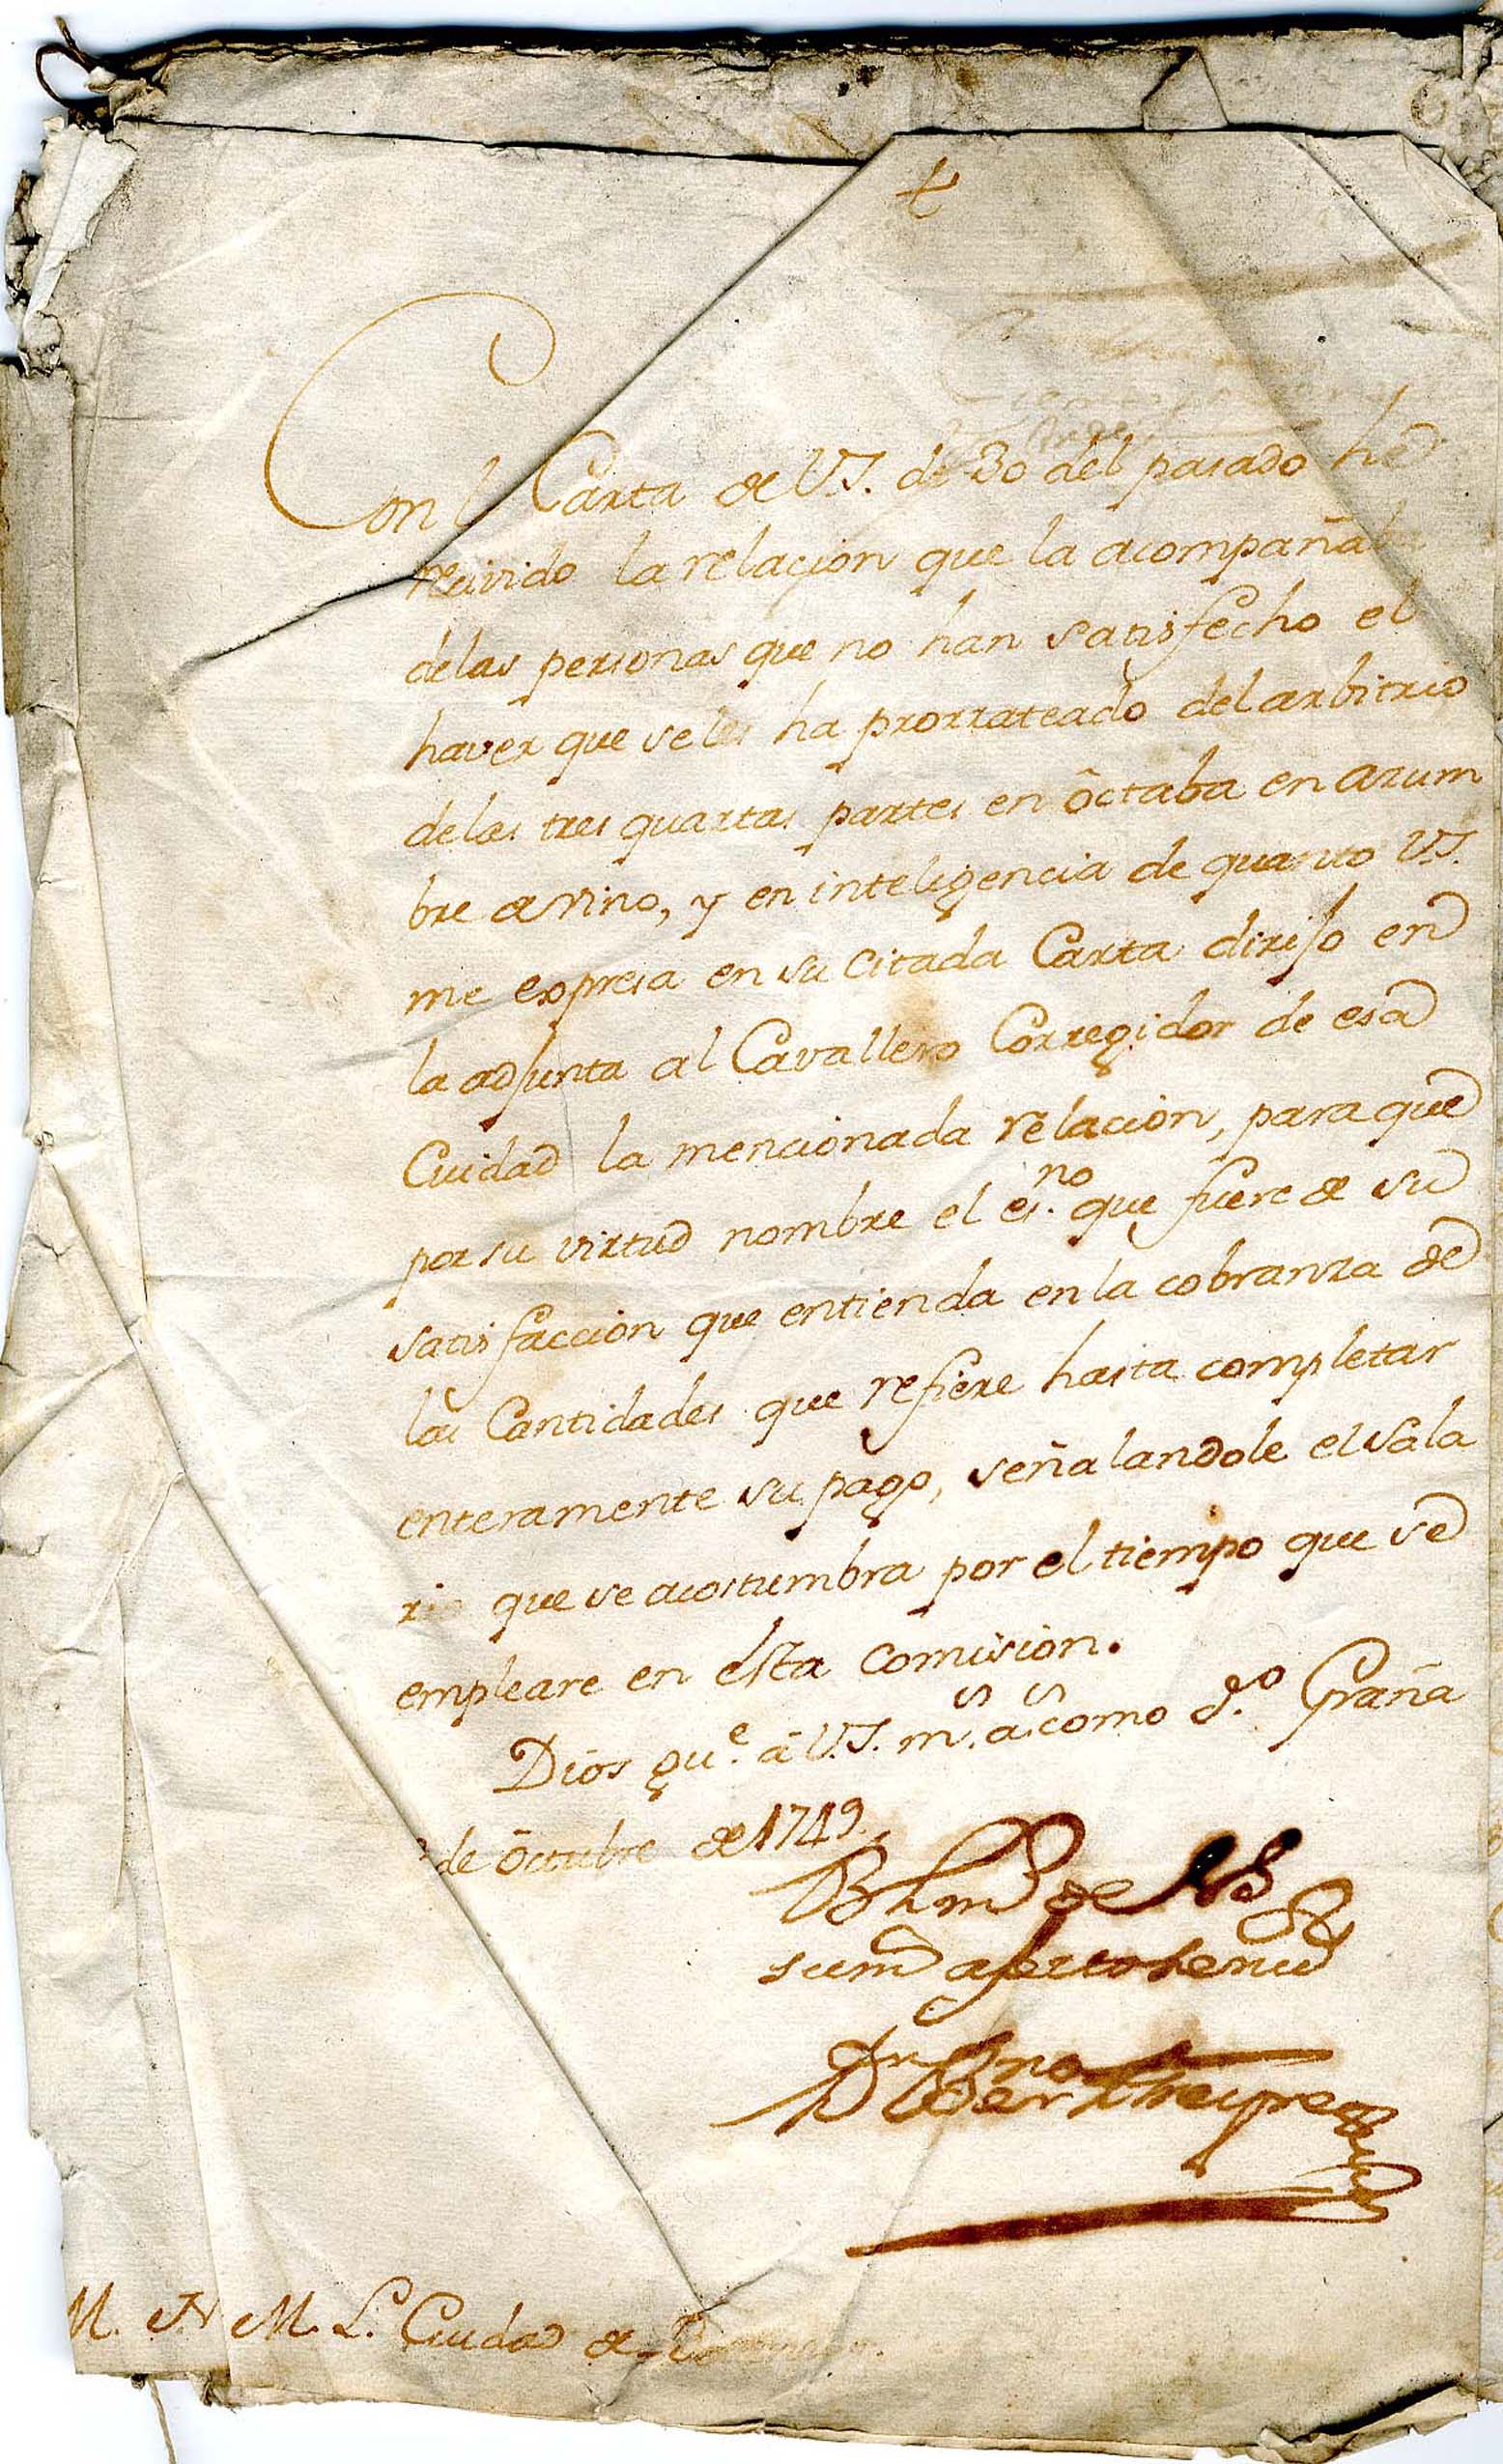 Con Carta de V.S. de 30 del pasado he
recivido la relacion que la acompañaba
delas personas que no han satisfecho el
haver que se les ha prorrateado del arbitrio
delas tres quartas partes en octaba en azum
bre de vino, y en inteligencia de quanto V.S.
me expresa en su citada Carta dirijo en
la adjunta al Cavallero Corregidor de esa
Cuidad la mencionada relacion, para que
por su virtud nombre el es.no que fuere de su
satisfaccion que entienda en la cobranza de
las Cantidades que refiere hasta completar
enteramente su pago, señalandole el sala
rio que se acostumbra por el tiempo que se
empleare en esta comision.
Dios gu.e â V.S. m.s a.s como d.o Graña
de ôctubre de 1749.
BLm de VS
su m afecto seru
Dn Berno Freyre
M. N. M. L. Ciudad de